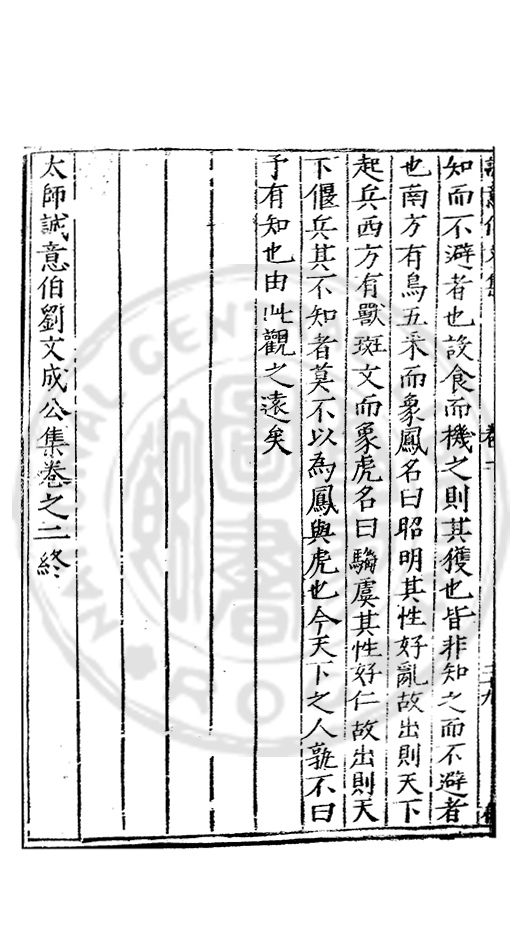 知而不避者也設食而機之則其獲也皆非知之而不避者
也南方有鳥五采而象鳳名曰昭明其性好亂故出則天下
起兵西方有獸斑文而象虎名曰騶虞其性好仁故出則天
下偃兵其不知者莫不以為鳳與虎也今天下之人孰不曰
予有知也由此觀之遠矣
太師誠意伯劉文成公集卷之二終